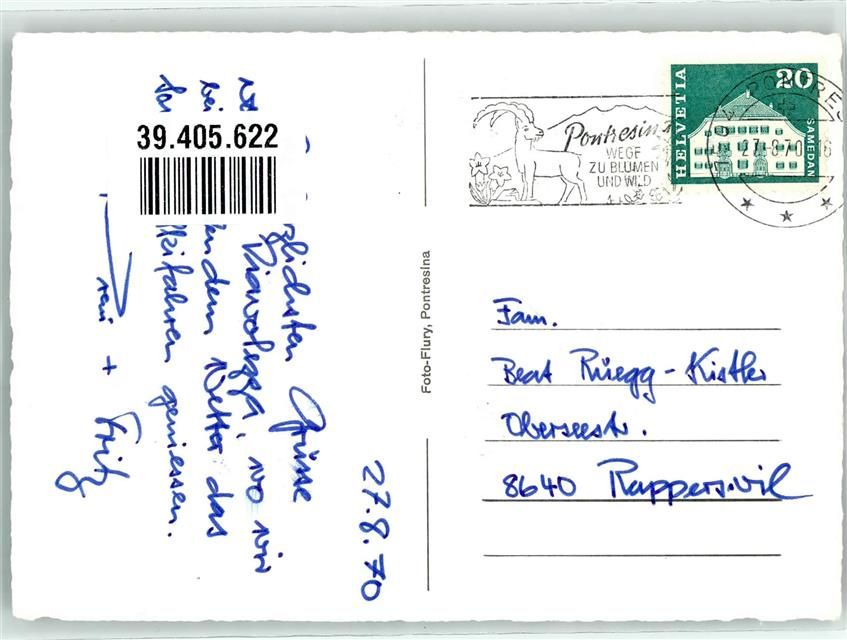 27.8.70
zlichsten Grüsse
Diavolezza, wo wir
bei
ndem Wetter das
kifahren geniessen.
+ Fritz
39.405.622
Foto-Flury, Pontresina
Pontresina
WEGE
ZU BLUMEN
UND WILD
HELVETIA
20
SAMEDAN
PONTRES
27.8.70 16
Fam.
Beat Rüegg-Kistler
Oberseestr.
8640 Rapperswil